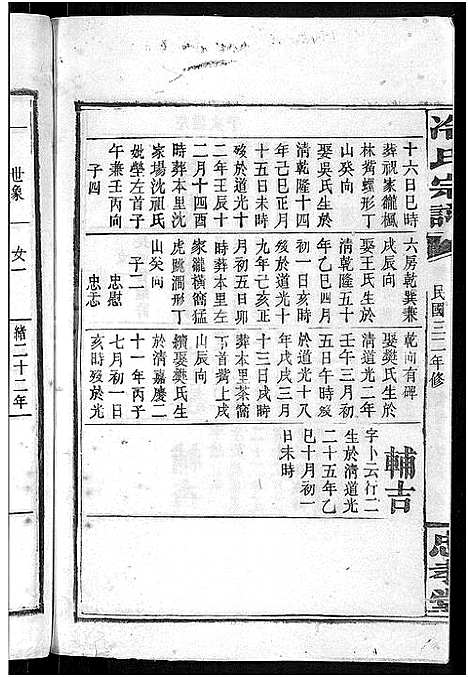 冷氏宗譜
民國三二年修
忠孝堂
十六日巳時
葬祝家瀧楓
林嘴螺形丁
山癸向
娶吳氏生於
清乾隆十四
年己巳正月
歿於道光十
二年壬辰十
二月十四酉
時葬本里沈
家塲沈祖氏
妣塋左首子
午兼壬丙向
子四
六房乾巽兼
戌辰向
娶王氏生於
清乾隆五十
年乙巳四月
初一日亥時
歿於道光十
九年己亥正
月初五日卯
時葬本里左
家瀧橫窩猛
虎跳澗形丁
山癸向
子二
忠慰
忠
乾向有碑
娶樊氏生於
清道光二年
壬午三月初
五日午時歿
於道光十八
年戊戌三月
十三日戌時
葬本里茶窩
下首嘴上戌
山辰向
續娶樊氏生
於清嘉慶二
十一年丙子
七月初一日
亥時歿於光
輔吉
字卜云行二
生於清道光
二十五年乙
巳十月初一
日未時
世象
女一
緒二十二年